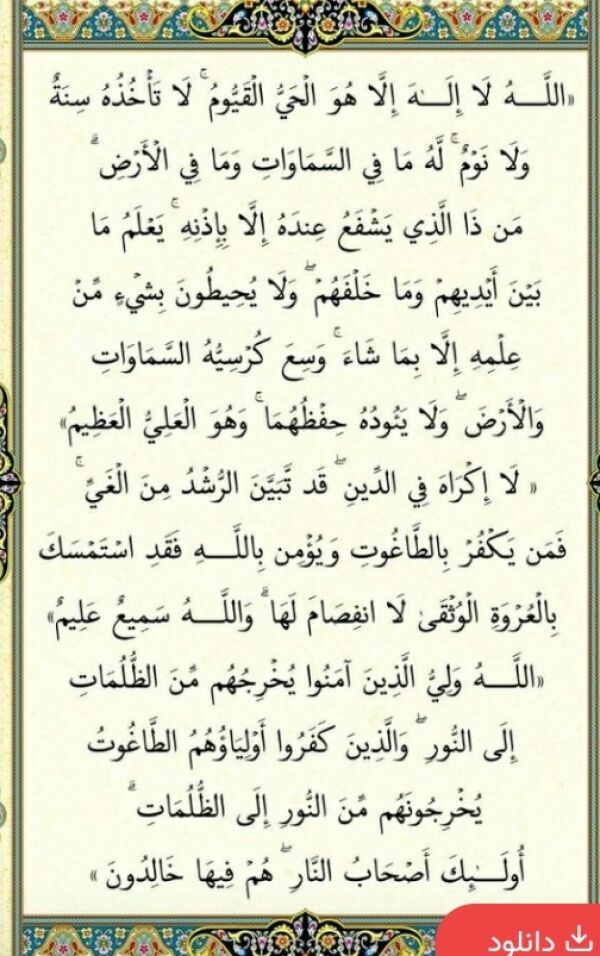 «اللَّـــهُ لَا إِلَـٰهَ إِلَّا هُوَ الْحَيُّ الْقَيُّومُ ۚ لَا تَأْخُذُهُ سِنَةٌ
وَلَا نَوْمٌ ۚ لَّهُ مَا فِي السَّمَاوَاتِ وَمَا فِي الْأَرْضِ ۗ
مَن ذَا الَّذِي يَشْفَعُ عِندَهُ إِلَّا بِإِذْنِهِ ۚ يَعْلَمُ مَا
بَيْنَ أَيْدِيهِمْ وَمَا خَلْفَهُمْ ۖ وَلَا يُحِيطُونَ بِشَيْءٍ مِّنْ
عِلْمِهِ إِلَّا بِمَا شَاءَ ۚ وَسِعَ كُرْسِيُّهُ السَّمَاوَاتِ
وَالْأَرْضَ ۖ وَلَا يَئُودُهُ حِفْظُهُمَا ۚ وَهُوَ الْعَلِيُّ الْعَظِيمُ»
« لَا إِكْرَاهَ فِي الدِّينِ ۖ قَد تَّبَيَّنَ الرُّشْدُ مِنَ الْغَيِّ ۚ
فَمَن يَكْفُرْ بِالطَّاغُوتِ وَيُؤْمِن بِاللَّـــهِ فَقَدِ اسْتَمْسَكَ
بِالْعُرْوَةِ الْوُثْقَىٰ لَا انفِصَامَ لَهَا ۗ وَاللَّـــهُ سَمِيعٌ عَلِيمٌ»
«اللَّـــهُ وَلِيُّ الَّذِينَ آمَنُوا يُخْرِجُهُم مِّنَ الظُّلُمَاتِ
إِلَى النُّورِ ۖ وَالَّذِينَ كَفَرُوا أَوْلِيَاؤُهُمُ الطَّاغُوتُ
يُخْرِجُونَهُم مِّنَ النُّورِ إِلَى الظُّلُمَاتِ ۗ
أُولَـٰئِكَ أَصْحَابُ النَّارِ ۖ هُمْ فِيهَا خَالِدُونَ »
دانلود